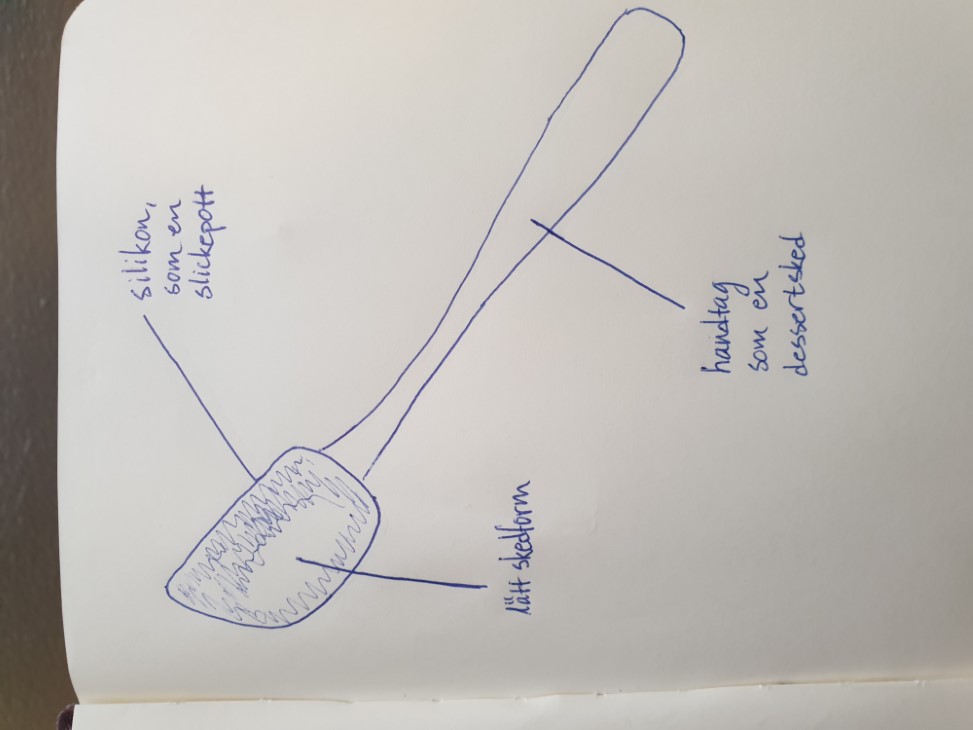 silikon,
som en
slickepott
lätt skedform
handtag
som en
dessertsked